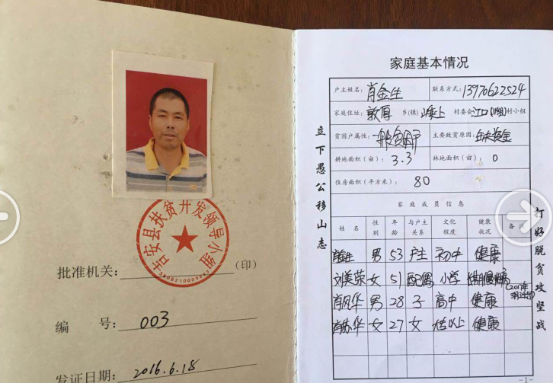 吉安县扶贫开发领导小组
批准机关： （印）
编 号： 003
发证日期： 2016.6.18
家庭基本情况
户主姓名： 肖金生 联系方式： 13970622524
家庭住址： 敦厚 乡(镇) 村委会 江口 村小组
贫困户属性： 一般贫困户 主要致贫原因： 缺资金
耕地面积（亩）： 3.3 林地面积（亩）： 0
住房面积（平方米）： 80
家庭成员信息
姓名 性别 年龄 与户主关系 文化程度 健康状况 备
男 53 户主 初中 健康
刘美荣 女 51 配偶 小学
肖凡华 男 28 子 高中 健康
女 27 女 健康
立下愚公移山志
打好脱贫攻坚战
-1-